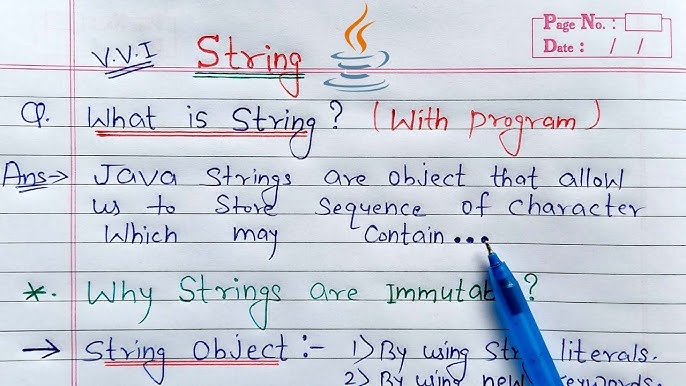 V.V.I String
Page No. :
Date : / /
Q. What is String? (With program)
Ans→ Java Strings are object that allow
us to Store Sequence of Character
Which may Contain...
*. Why Strings are Immutab ?
→ String Object :- 1) By using Str literals.
2) By using new words.